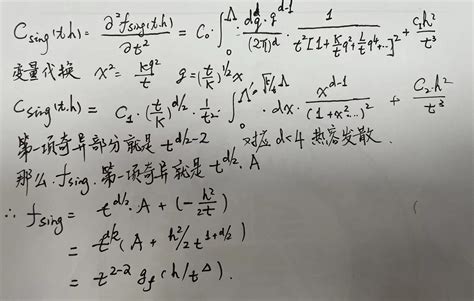 C_sing(t,h) = ∂²f_sing(t,h)/∂t² = C₀·∫₀^Λ dq^d·q^(d-1)/(2π)^d · 1/(t²[1+(K/t)q²+(L/t)q⁴...]²) + C₁h²/t³
变量代换 x² = Kq²/t q=(t/K)^(1/2)x
C_sing(t,h) = C₁·(t/K)^(d/2)·1/t²·∫₀^(Λ·√(K/t)) dx·x^(d-1)/(1+x²...)² + C₂h²/t³
第一项奇异部分就是 t^(d/2-2) 对应 d<4 热容发散.
那么 f_sing. 第一项奇异就是 t^(d/2)·A
∴ f_sing = t^(d/2)·A + (-h²/2t)
= t^(d/2)(A + h²/2t^(1+d/2))
= t^(2-α) g_f(h/t^Δ).